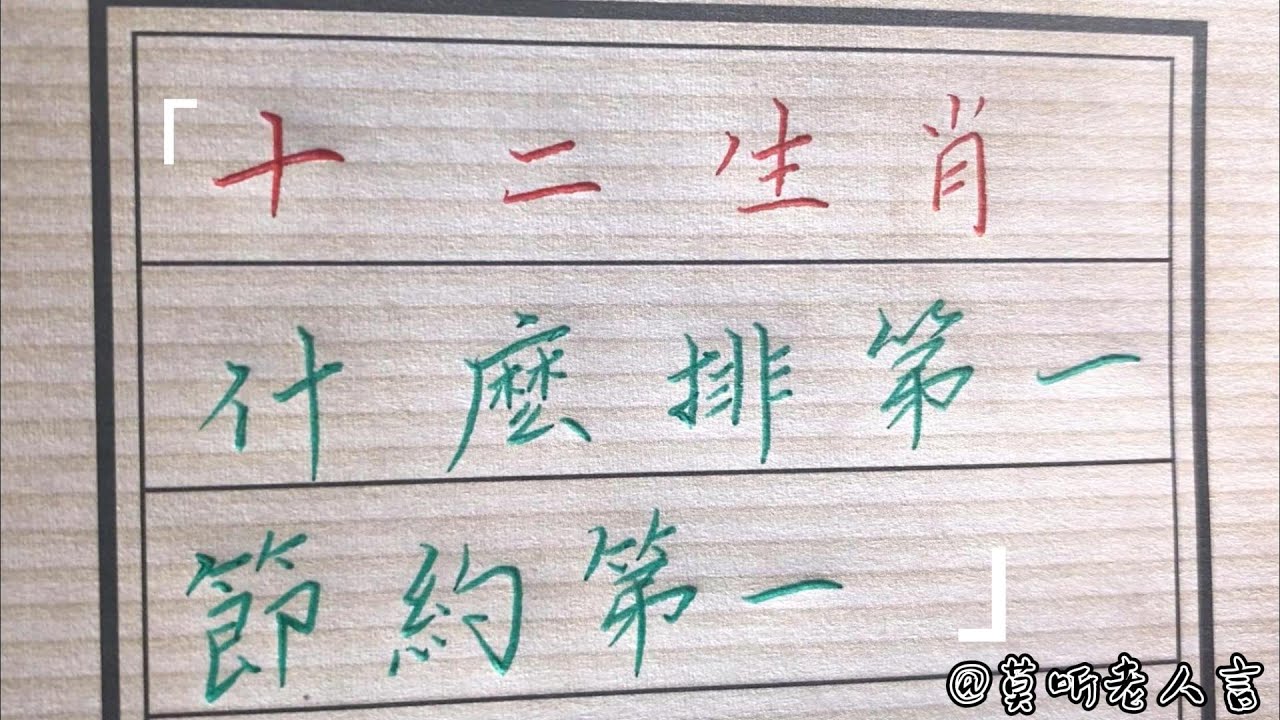 「十二生肖
什麼排第一
節約第一」
@莫听老人言